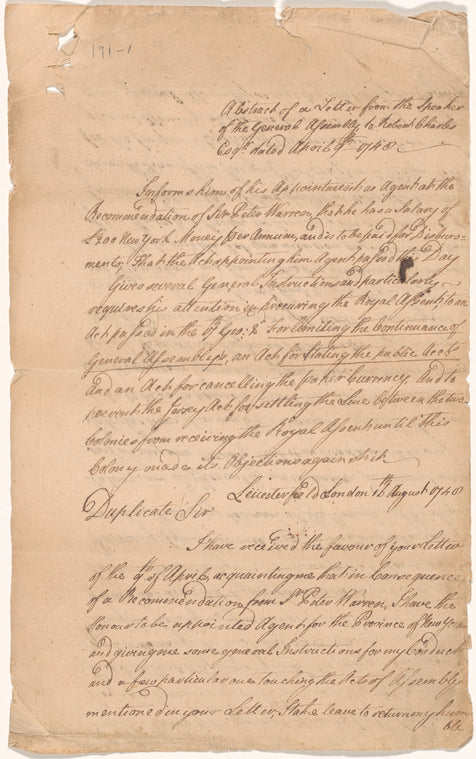 191-1
Abstract of a Letter from the Speaker
of the General Assembly to Robert Charles
Esqr. dated April 9th 1748
Informs him of his Appointment as Agent at the
Recommendation of Sir Peter Warren, that he has a Salary of
£200 New York Money per Annum, and is to be paid for Disburse-
ments, That the Act appointing him Agent passed this Day
Gives several General Instructions and particularly
requires his attention in procuring the Royal Assent to an
Act passed in the Geo: 2 for limiting the Continuance of
General Assemblys, an Act for stating the public Accts
and an Act for cancelling the paper Currency And to
prevent the Jersey Act for settling the Line between the two
Colonies from receiving the Royal Assent until this
Colony made its Objections against it
Leicesterfield London August 1748
Duplicate Sir
I have received the favour of your Letter
of the 9th of April, acquainting me that in Consequence
of a Recommendation from Sr. Peter Warren, I have the
Honour to be appointed Agent for the Province of New York
and giving me some general Instructions for my Conduct
and a few particular ones touching the Acts of Assembly
mentioned in your Letter, I take leave to return my hum
ble